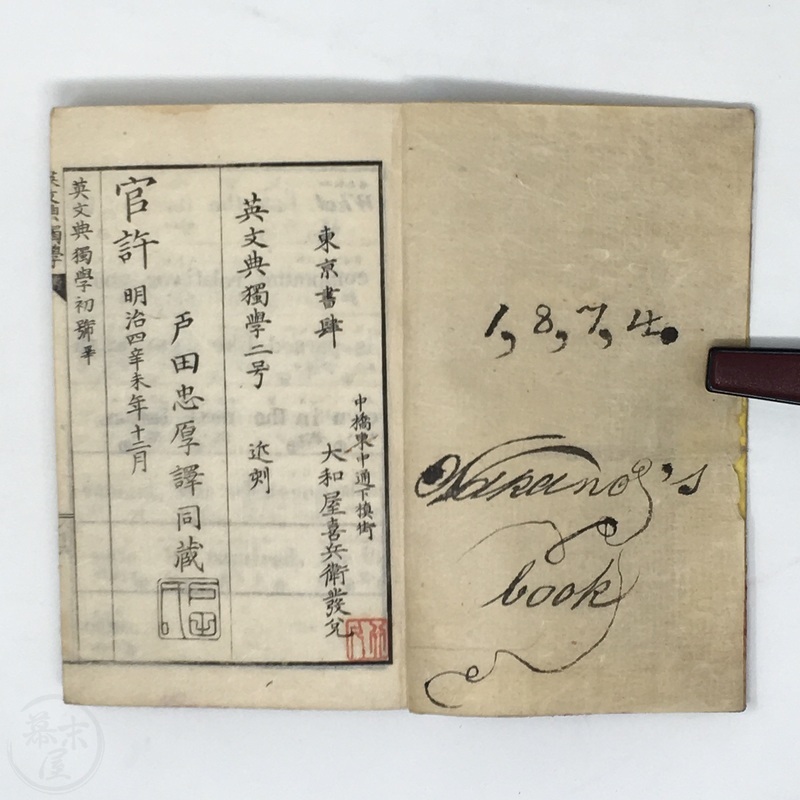 東京書肆
中橋東中通下槙街
大和屋喜兵衛發兌
英文典獨學二号 近刻
戸田忠厚譯同藏
官許 明治四辛未年十二月
英文典獨學初號畢
英文典獨學
1,8,7,4.
Nakano's
book
幕末屋